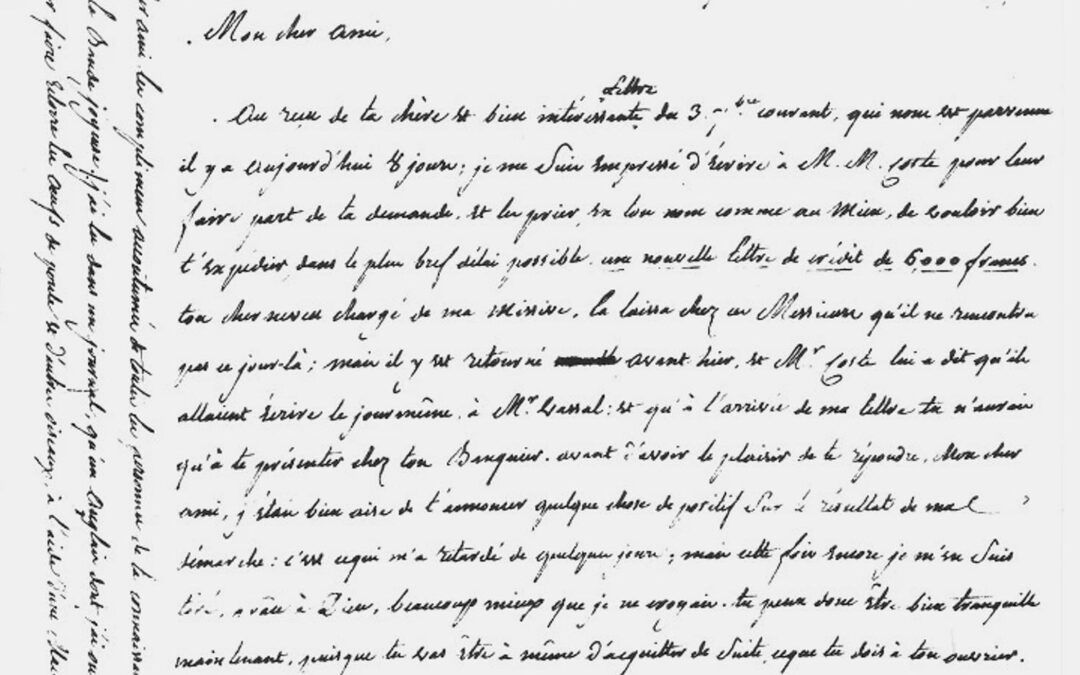 Mon cher ami,
lettre
Au reçu de ta chère et bien intéressante du 3 7bre courant, qui nous est parvenue
il y a aujourd'hui 8 jours; je me suis empressé d'écrire à M.M. Coste pour leur
faire part de ta demande, et les prier en ton nom comme au mien, de vouloir bien
t'expédier dans le plus bref délai possible, une nouvelle lettre de crédit de 6,000 francs.
ton cher neveu chargé de ma missive, la laissa chez ces Messieurs qu'il ne rencontra
pas ce jour-là; mais il y est retourné avant hier, et Mr Coste lui a dit qu'ils
allaient écrire le jour même, à Mr Cassal; et qu'à l'arrivée de ma lettre tu n'aurais
qu'à te présenter chez ton Banquier. avant d'avoir le plaisir de te répondre, Mon cher
ami, j'étais bien aise de t'annoncer quelque chose de positif sur le résultat de ma
démarche: c'est ce qui m'a retardé de quelques jours; mais cette fois encore je m'en suis
tiré, grâce à Dieu, beaucoup mieux que je ne croyais. tu peux donc être bien tranquille
maintenant, puisque tu vas être à même d'acquitter de suite, ce que tu dois à ton ouvrier.
ami, les complimens accoutumés de toutes les personnes de ta connaissan
j'ai lu dans un journal, qu'un Anglais dont j'ai ou
faire éclore les oeufs de poule et d'autres oiseaux, à l'aide d'une